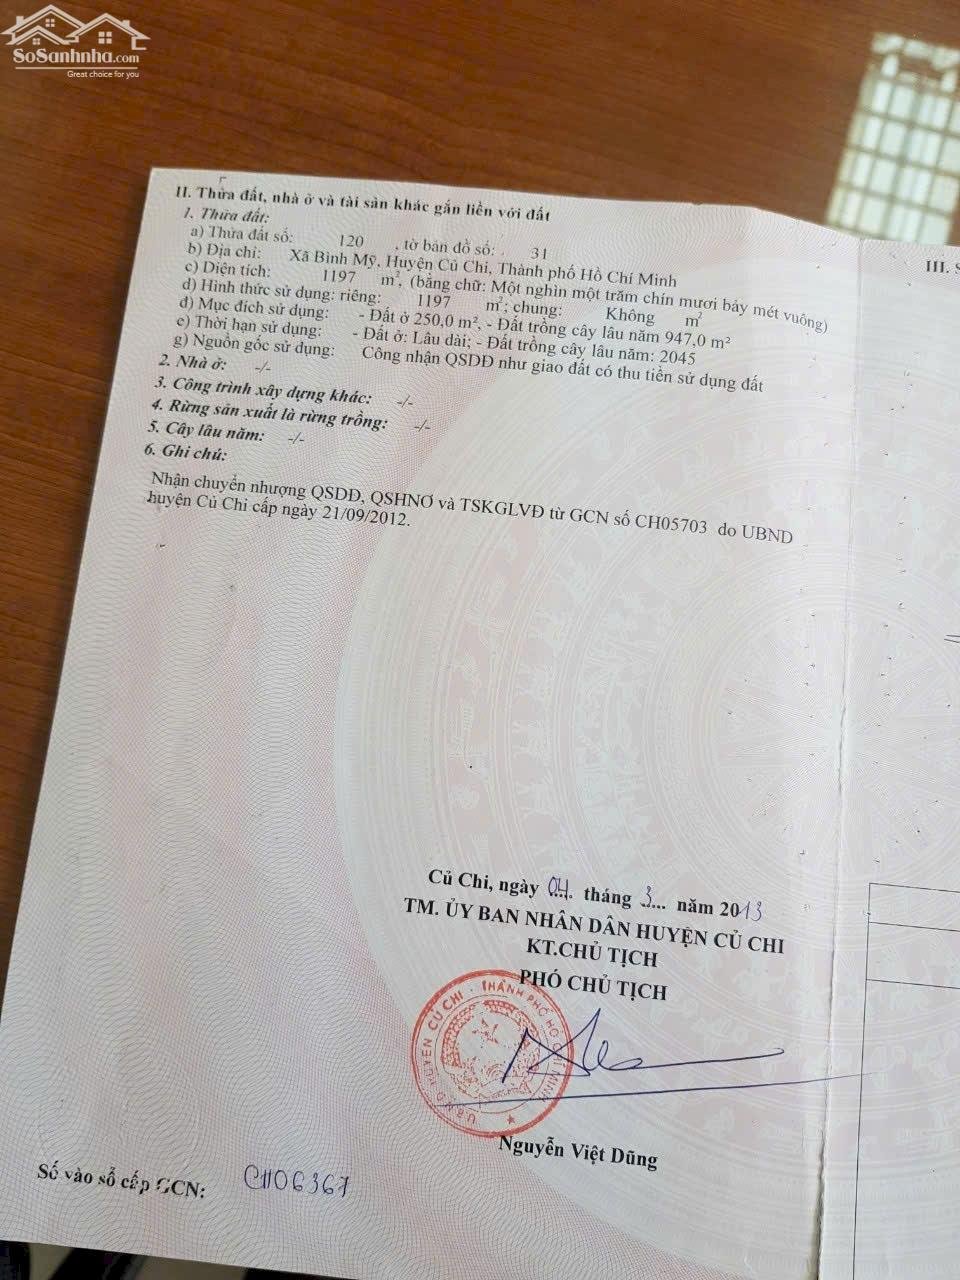 SoSanhnha.com
Great choice for you
II. Thửa đất, nhà ở và tài sản khác gắn liền với đất
III. S
1. Thửa đất:
a) Thửa đất số: 120 , tờ bản đồ số: 31
b) Địa chỉ: Xã Bình Mỹ, Huyện Củ Chi, Thành phố Hồ Chí Minh
c) Diện tích: 1197 m², (bằng chữ: Một nghìn một trăm chín mươi bảy mét vuông)
d) Hình thức sử dụng: riêng: 1197 m²; chung: Không m²
đ) Mục đích sử dụng: - Đất ở 250,0 m², - Đất trồng cây lâu năm 947,0 m²
e) Thời hạn sử dụng: - Đất ở: Lâu dài; - Đất trồng cây lâu năm: 2045
g) Nguồn gốc sử dụng: Công nhận QSDĐ như giao đất có thu tiền sử dụng đất
2. Nhà ở: -/-
3. Công trình xây dựng khác: -/-
4. Rừng sản xuất là rừng trồng: -/-
5. Cây lâu năm: -/-
6. Ghi chú:
Nhận chuyển nhượng QSDĐ, QSHNƠ và TSKGLVĐ từ GCN số CH05703 do UBND
huyện Củ Chi cấp ngày 21/09/2012.
Củ Chi, ngày 04 tháng 3 năm 2013
TM. ỦY BAN NHÂN DÂN HUYỆN CỦ CHI
KT.CHỦ TỊCH
PHÓ CHỦ TỊCH
U.B.N.D HUYỆN CỦ CHI - THÀNH PHỐ HỒ CHÍ MINH
Nguyễn Việt Dũng
Số vào sổ cấp GCN: CH06367